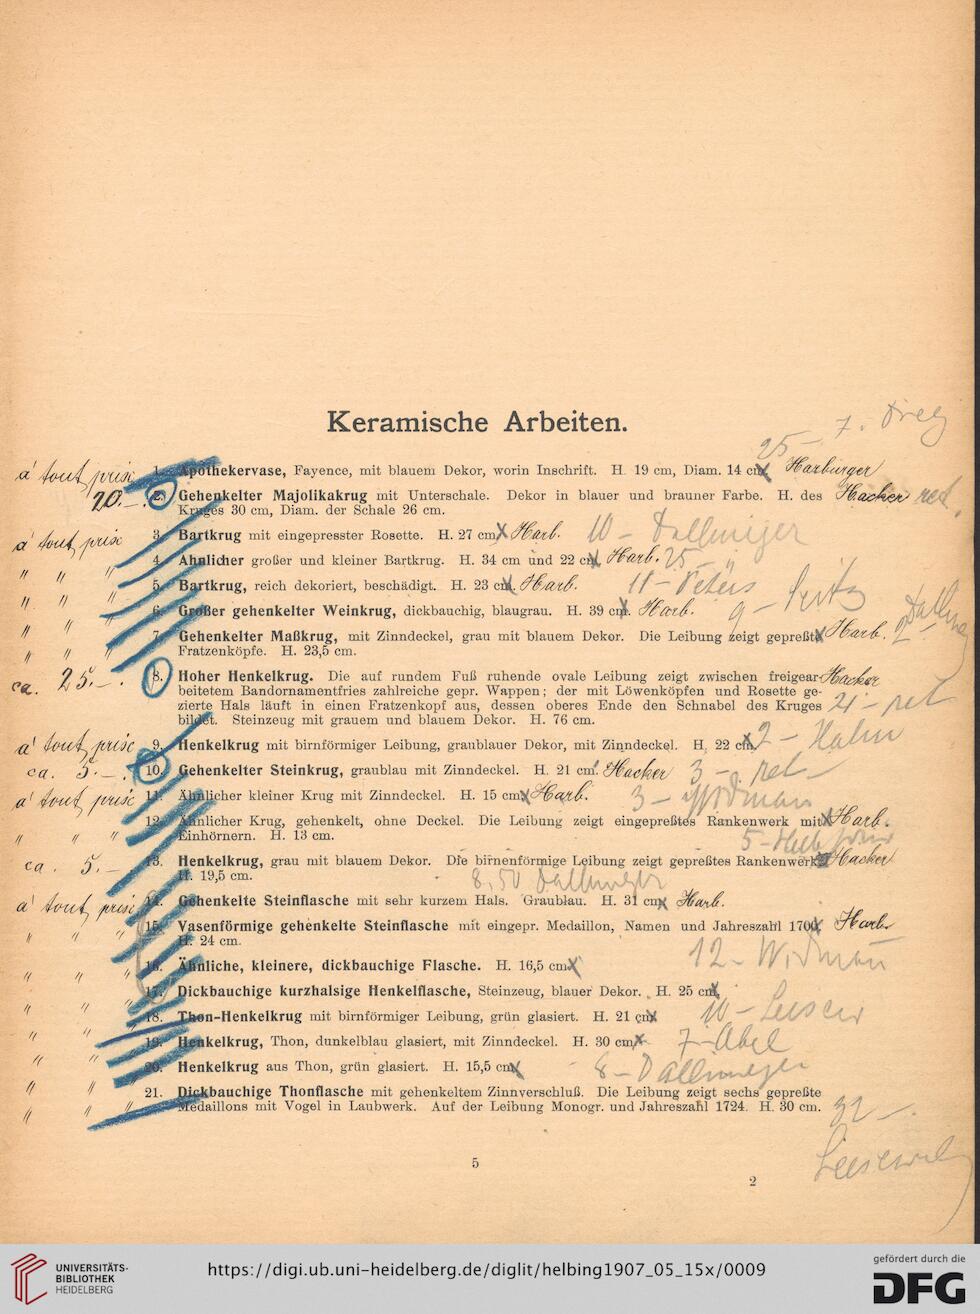 Keramische Arbeiten.
7. Drey
25 –
à tout prix 1. Apothekervase, Fayence, mit blauem Dekor, worin Inschrift. H. 19 cm, Diam. 14 cm. Harburger
20.–. 2. Gehenkelter Majolikakrug mit Unterschale. Dekor in blauer und brauner Farbe. H. des Hacker ret.
Kruges 30 cm, Diam. der Schale 26 cm.
à tout prix 3. Bartkrug mit eingepresster Rosette. H. 27 cm. Harb. 10 – Dallmeijer
" " " 4. Ähnlicher großer und kleiner Bartkrug. H. 34 cm und 22 cm. Harb. 25 –
" " " 5. Bartkrug, reich dekoriert, beschädigt. H. 23 cm. Harb. 11 – Peters
" " " 6. Großer gehenkelter Weinkrug, dickbauchig, blaugrau. H. 39 cm. Harb. 9 –
" " " 7. Gehenkelter Maßkrug, mit Zinndeckel, grau mit blauem Dekor. Die Leibung zeigt gepreßte Harb.
Fratzenköpfe. H. 23,5 cm.
ca. 25.–. 8. Hoher Henkelkrug. Die auf rundem Fuß ruhende ovale Leibung zeigt zwischen freigear- Hacker
beitetem Bandornamentfries zahlreiche gepr. Wappen; der mit Löwenköpfen und Rosette ge-
zierte Hals läuft in einen Fratzenkopf aus, dessen oberes Ende den Schnabel des Kruges 21 – ret
bildet. Steinzeug mit grauem und blauem Dekor. H. 76 cm.
à tout prix 9. Henkelkrug mit birnförmiger Leibung, graublauer Dekor, mit Zinndeckel. H. 22 cm. 2 – Hahn
ca. 5.–. 10. Gehenkelter Steinkrug, graublau mit Zinndeckel. H. 21 cm. Hacker 3 – ret –
à tout prix 11. Ähnlicher kleiner Krug mit Zinndeckel. H. 15 cm. Harb. 3 –
" " " 12. Ähnlicher Krug, gehenkelt, ohne Deckel. Die Leibung zeigt eingepreßtes Rankenwerk mit Harb.
Einhörnern. H. 13 cm. 5 –
ca. 5.– 13. Henkelkrug, grau mit blauem Dekor. Die birnenförmige Leibung zeigt gepreßtes Rankenwerk. Hacker
H. 19,5 cm. 8,50 Dallmeyer
à tout prix 14. Gehenkelte Steinflasche mit sehr kurzem Hals. Graublau. H. 31 cm. Harb.
" " " 15. Vasenförmige gehenkelte Steinflasche mit eingepr. Medaillon, Namen und Jahreszahl 1700. Harb.
H. 24 cm.
" " 16. Ähnliche, kleinere, dickbauchige Flasche. H. 16,5 cm. 12 – Widman
" " 17. Dickbauchige kurzhalsige Henkelflasche, Steinzeug, blauer Dekor. H. 25 cm.
" " 18. Thon-Henkelkrug mit birnförmiger Leibung, grün glasiert. H. 21 cm. 10 –
" " 19. Henkelkrug, Thon, dunkelblau glasiert, mit Zinndeckel. H. 30 cm. 7 – Abel
" " 20. Henkelkrug aus Thon, grün glasiert. H. 15,5 cm. 8 – Dallmeyer
" " 21. Dickbauchige Thonflasche mit gehenkeltem Zinnverschluß. Die Leibung zeigt sechs gepreßte
" " Medaillons mit Vogel in Laubwerk. Auf der Leibung Monogr. und Jahreszahl 1724. H. 30 cm. 32 –.
5
2
UNIVERSITÄTS-
BIBLIOTHEK
HEIDELBERG
https://digi.ub.uni-heidelberg.de/diglit/helbing1907_05_15x/0009
gefördert durch die
DFG